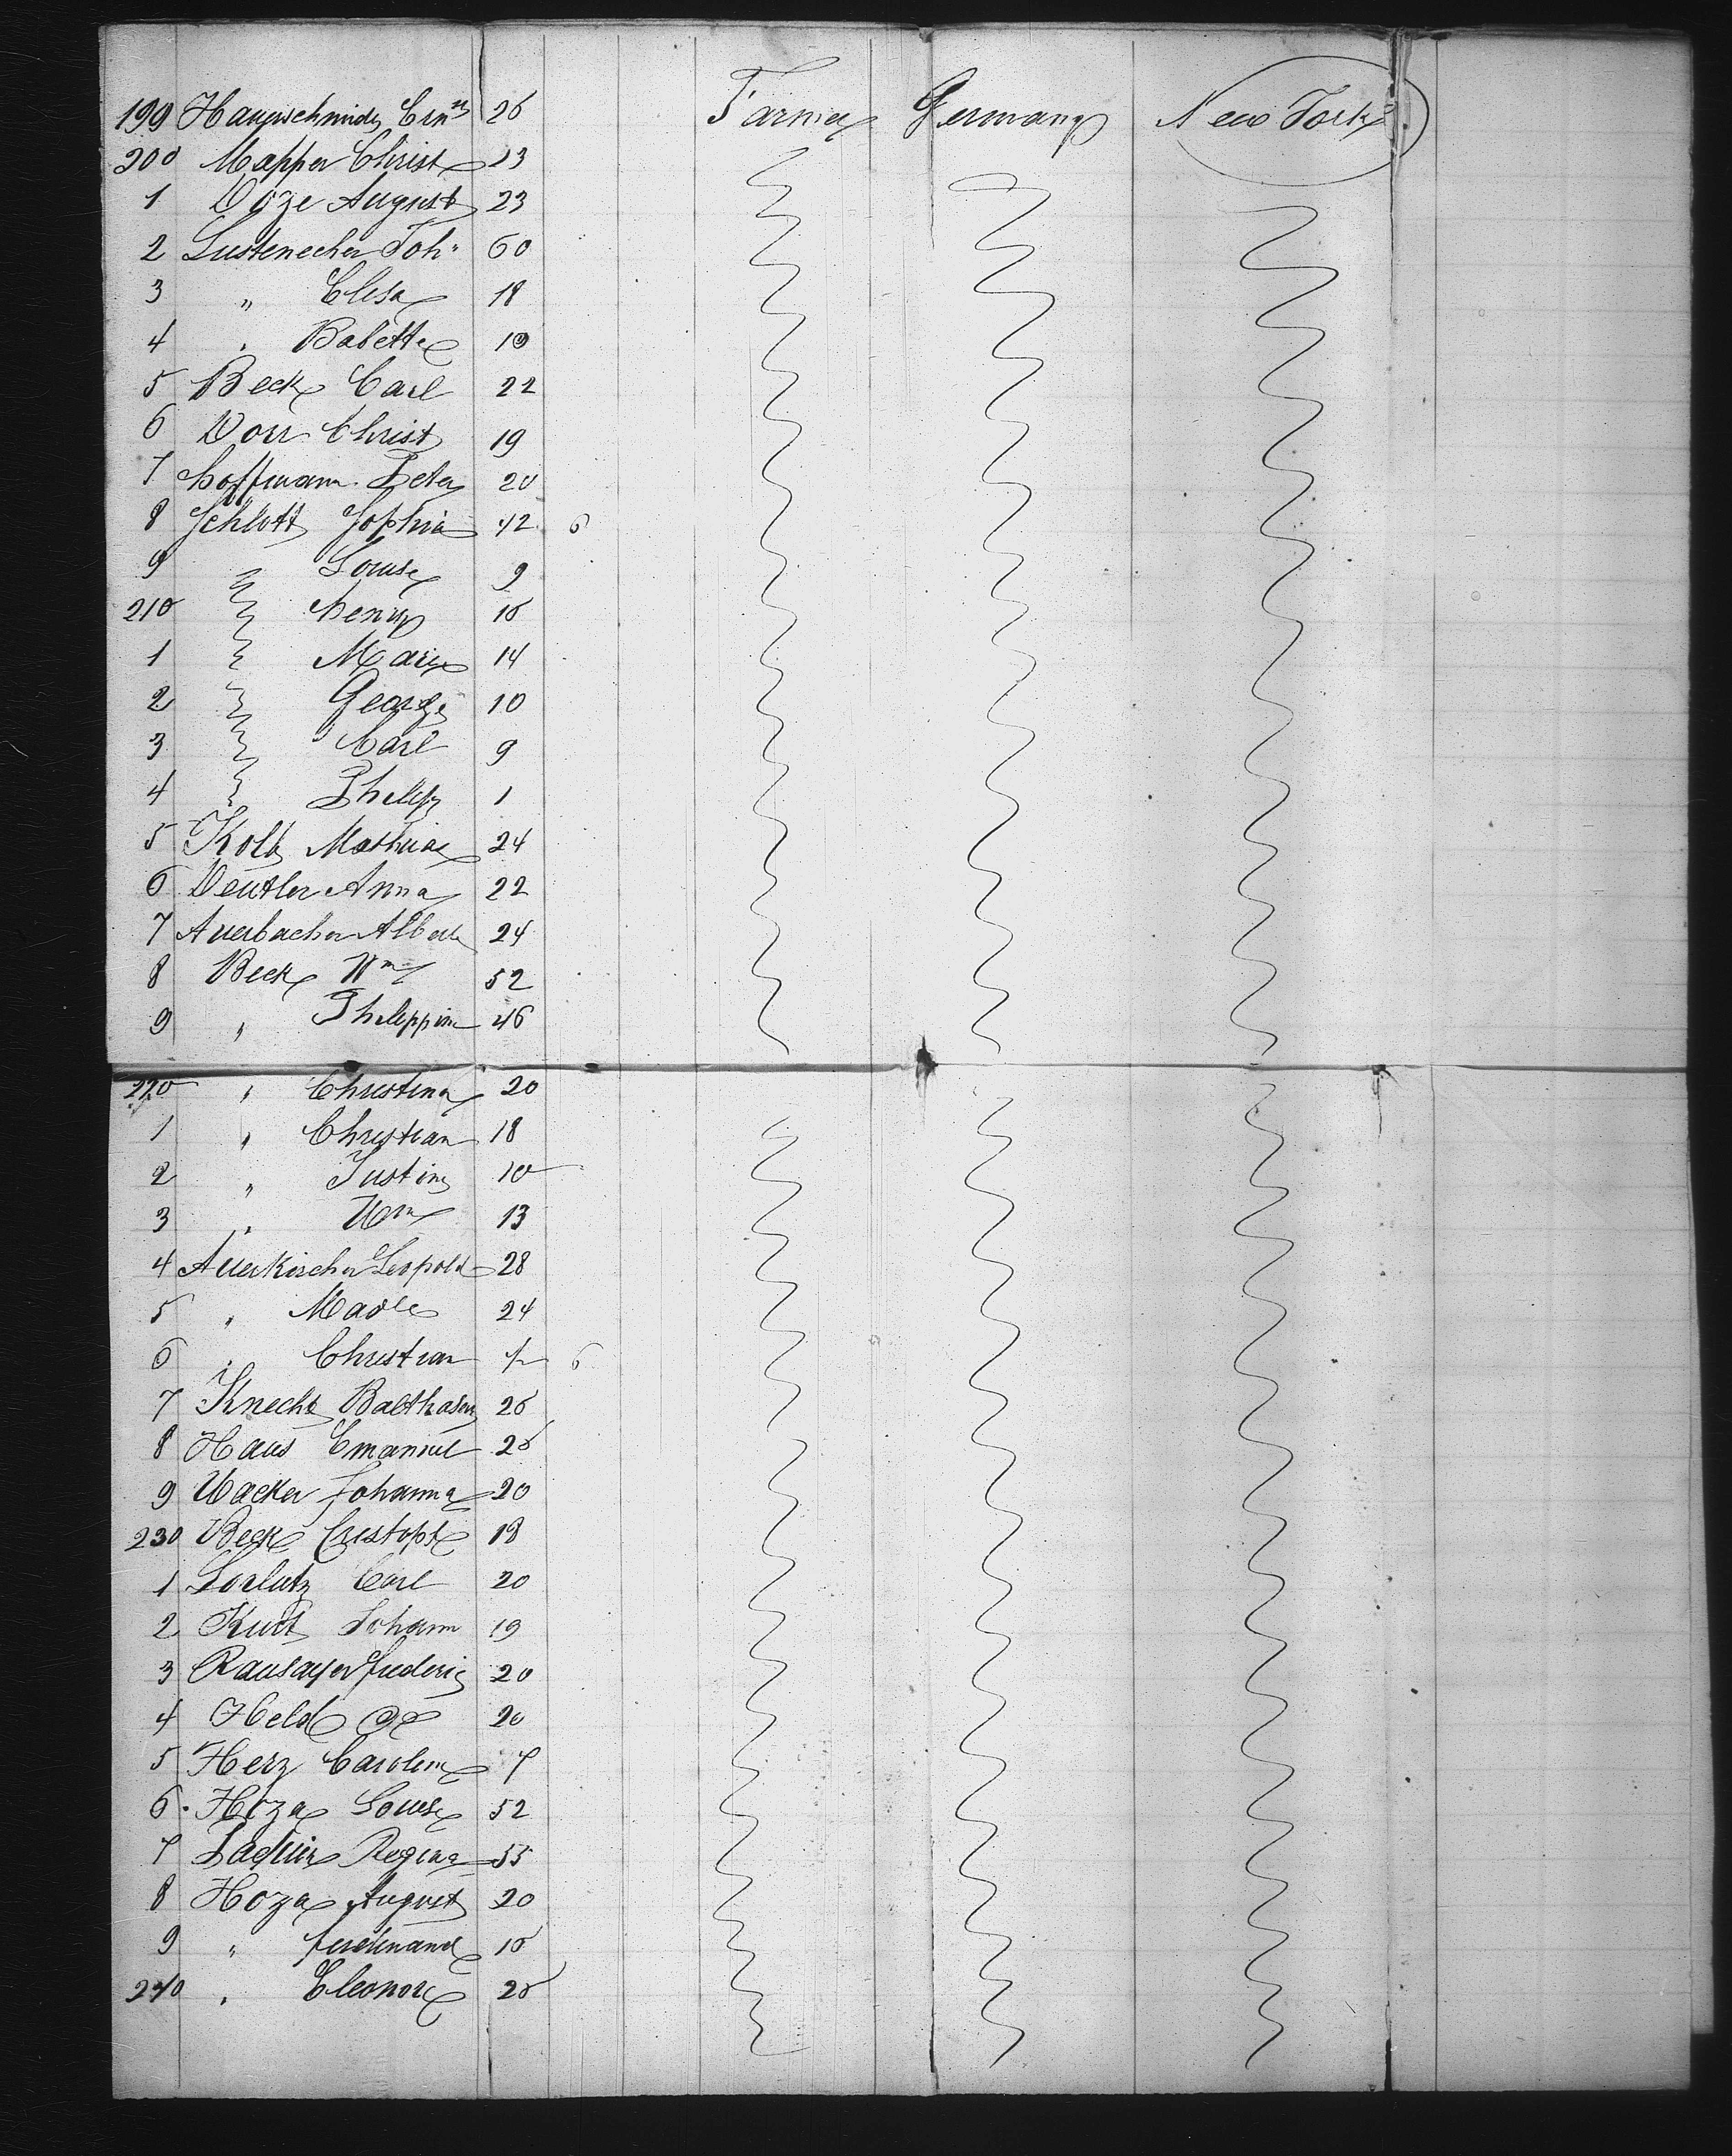 199 Hauswchmidt Ern 26 Farmer Germany New York
200 Mapper Christ 23
1 Doze August 23
2 Lustenecher Joh 60
3 " Elisa 18
4 " Babette 19
5 Beck Carl 22
6 Dorr Christ 19
7 hoffmann Peter 20
8 Schlott Sophia 42 6
9 Louise 9
210 henry 16
1 Mary 14
2 George 10
3 Carl 9
4 Philip 1
5 Kolb Mathias 24
6 Deutler Anna 22
7 Auerbacher Albert 24
8 Beck Wm 52
9 " Philippine 46
220 " Christina 20
1 " Christian 18
2 " Justine 10
3 " Wm 13
4 Auerkircher Leopold 28
5 " Madle 24
6 " Christian 6
7 Knecht Balthasar 26
8 Haus Emanuel 28
9 Wacker Johanna 20
230 Beck Cristoph 18
1 Lorlutz Carl 20
2 Kurt Johann 19
3 Rausayer frederic 20
4 Held 20
5 Herz Caroline 7
6 Hoza Louise 52
7 Regina 55
8 Hoza August 20
9 " ferdinand 16
240 " Eleonore 28